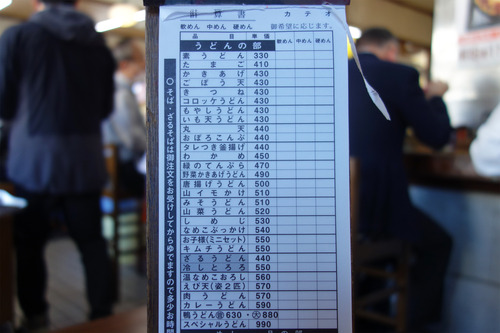 計算書 カテオ
軟めん 中めん 硬めん 御希望に応じます。
品目 単価 軟めん 中めん 硬めん
うどんの部
素うどん 330
たまご 410
かきあげ 430
ごぼう天 430
きつね 430
コロッケうどん 430
もやしうどん 430
いも天うどん 430
丸天 440
おぼろこんぶ 440
タレつき釜揚げ 440
わかめ 450
緑のてんぷら 470
野菜かきあげうどん 490
唐揚げうどん 500
山イモかけ 510
みそうどん 510
山菜うどん 520
しめじ 530
なめこぶっかけ 540
お子様(ミニセット) 550
キムチうどん 550
ざるうどん 440
冷しとろろ 550
温なめこおろし 560
えび天(姿2匹) 570
肉うどん 590
カレーうどん 590
鴨うどん 630・大880
スペシャルうどん 990
〇そば・ざるそばは御注文をお受けしてからゆでますので多少お時間